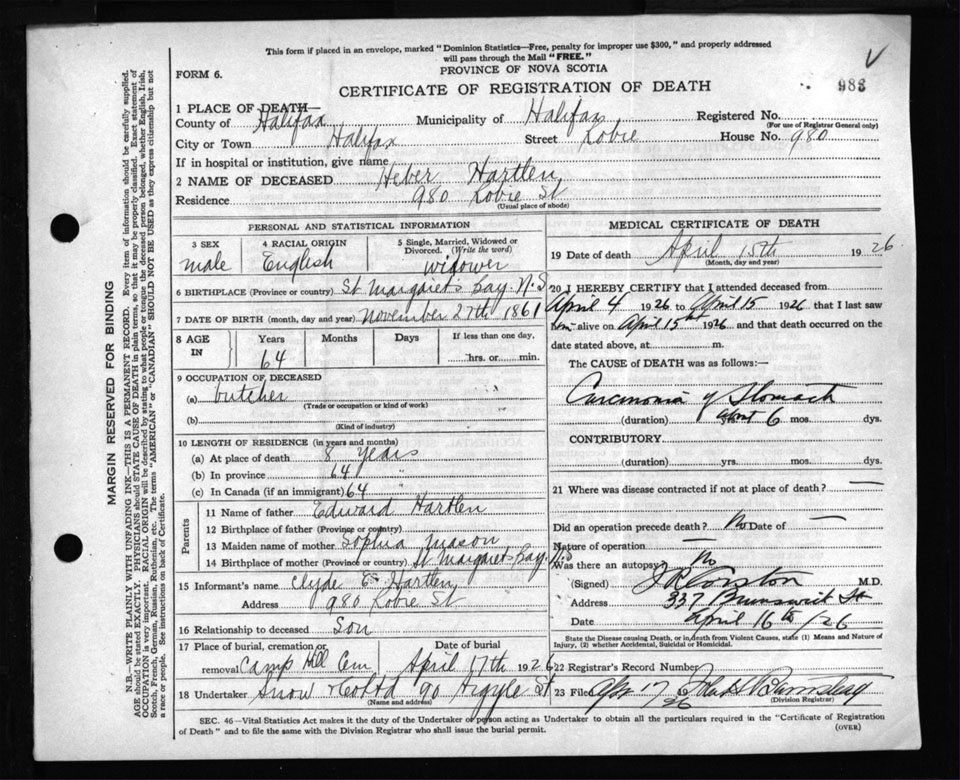 This form if placed in an envelope, marked "Dominion Statistics—Free, penalty for improper use $300," and properly addressed
will pass through the Mail "FREE."
PROVINCE OF NOVA SCOTIA
FORM 6.
CERTIFICATE OF REGISTRATION OF DEATH
983
1 PLACE OF DEATH—
County of Halifax Municipality of Halifax Registered No.
(For use of Registrar General only)
City or Town Halifax Street Robie House No. 980
If in hospital or institution, give name
2 NAME OF DECEASED Heber Hartlen
Residence 980 Robie St
(Usual place of abode)
PERSONAL AND STATISTICAL INFORMATION
3 SEX 4 RACIAL ORIGIN 5 Single, Married, Widowed or Divorced. (Write the word)
male English widower
6 BIRTHPLACE (Province or country) St Margaret's Bay. N.S
7 DATE OF BIRTH (month, day and year) November 27th 1861
8 AGE IN Years Months Days If less than one day,
64 hrs. or min.
9 OCCUPATION OF DECEASED
(a) butcher
(Trade or occupation or kind of work)
(b)
(Kind of industry)
10 LENGTH OF RESIDENCE (in years and months)
(a) At place of death 8 years
(b) In province 64 "
(c) In Canada (if an immigrant) 64
Parents
11 Name of father Edward Hartlen
12 Birthplace of father (Province or country)
13 Maiden name of mother Sophia Mason
14 Birthplace of mother (Province or country) St Margarets Bay N.S
15 Informant's name Clyde E Hartlen
Address 980 Robie St
16 Relationship to deceased Son
17 Place of burial, cremation or removal Camp Hill Cem Date of burial April 17th 1926
18 Undertaker Snow & Co Ltd 90 Argyle St
(Name and address)
MEDICAL CERTIFICATE OF DEATH
19 Date of death April 15th 1926
(Month, day and year)
20 I HEREBY CERTIFY that I attended deceased from
April 4 1926 to April 15 1926 that I last saw
him alive on April 15th 1926 and that death occurred on the
date stated above, at m.
The CAUSE OF DEATH was as follows:—
Carcinonia of Stomach
(duration) about 6 mos. dys.
CONTRIBUTORY
(duration) yrs. mos. dys.
21 Where was disease contracted if not at place of death? —
Did an operation precede death? No Date of —
Nature of operation —
Was there an autopsy? No
(Signed) M.D.
Address 337 Brunswick St
Date April 16th /26
State the Disease causing Death, or in death from Violent Causes, state (1) Means and Nature of
Injury, (2) whether Accidental, Suicidal or Homicidal.
22 Registrar's Record Number
23 Filed Apr 17 1926
(Division Registrar)
SEC. 46—Vital Statistics Act makes it the duty of the Undertaker or person acting as Undertaker to obtain all the particulars required in the "Certificate of Registration
of Death" and to file the same with the Division Registrar who shall issue the burial permit.
(OVER)
MARGIN RESERVED FOR BINDING
N.B.—WRITE PLAINLY WITH UNFADING INK—THIS IS A PERMANENT RECORD. Every item of information should be carefully supplied.
AGE should be stated EXACTLY. PHYSICIANS should STATE CAUSE OF DEATH in plain terms, so that it may be properly classified. Exact statement of
OCCUPATION is very important. RACIAL ORIGIN will be described by stating to what people or tongue the deceased person belonged, whether English, Irish,
Scotch, French, German, Russian, Ruthenian, etc. The terms "AMERICAN" or "CANADIAN" SHOULD NOT BE USED as they express citizenship but not
a race or people. See instructions on back of Certificate.